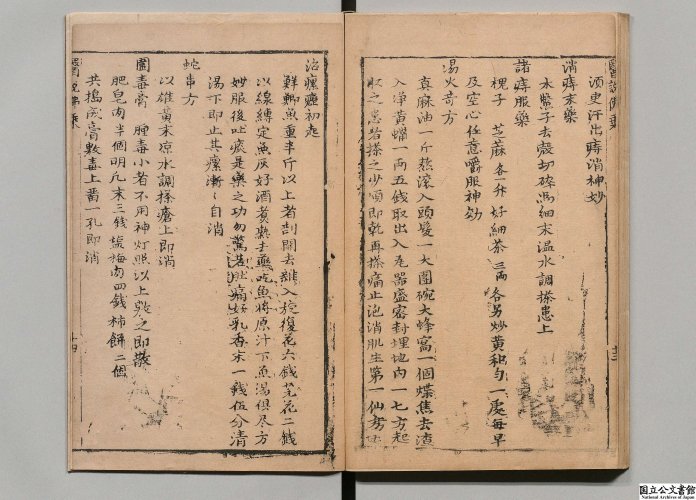 須更汗出痔消神妙
消痔末藥
木鱉子去殻切碎為細末温水調搽患上
諸痔服藥
槐子 芝蔴各一升 好細茶三両 各另炒黄和匀一處每早
及空心任意嚼服神効
湯火奇方
真麻油一斤熬滚入頭髮一大團碗大蜂窩一個煠焦去渣
入净黄蠟一両五錢取出入瓦器盛密封埋地内一七方起
取之患者搽之少頃即乾再搽痛止泡消肌生第一仙方也
治瘰癧初起
鮮鯽魚重半斤以上者剖開去雜入旋復花六錢芫花二錢
以線縛定魚灰好酒煑熟去藥吃魚將原汁下魚湯俱尽方
妙服後吐痰是藥之功勿驚若肚痛好乳香末一錢伍分清
湯下即止其瘰漸〻自消
蛇串方
以雄黄末凉水調搽瘡上即消
圍毒膏 腫毒小者不用神灯照以上敷之即散
肥皂肉半個明凢末三錢塩梅肉四錢柿餅二個
共搗成膏敷毒上畱一孔即消
十四
国立公文書館
National Archives of Japan